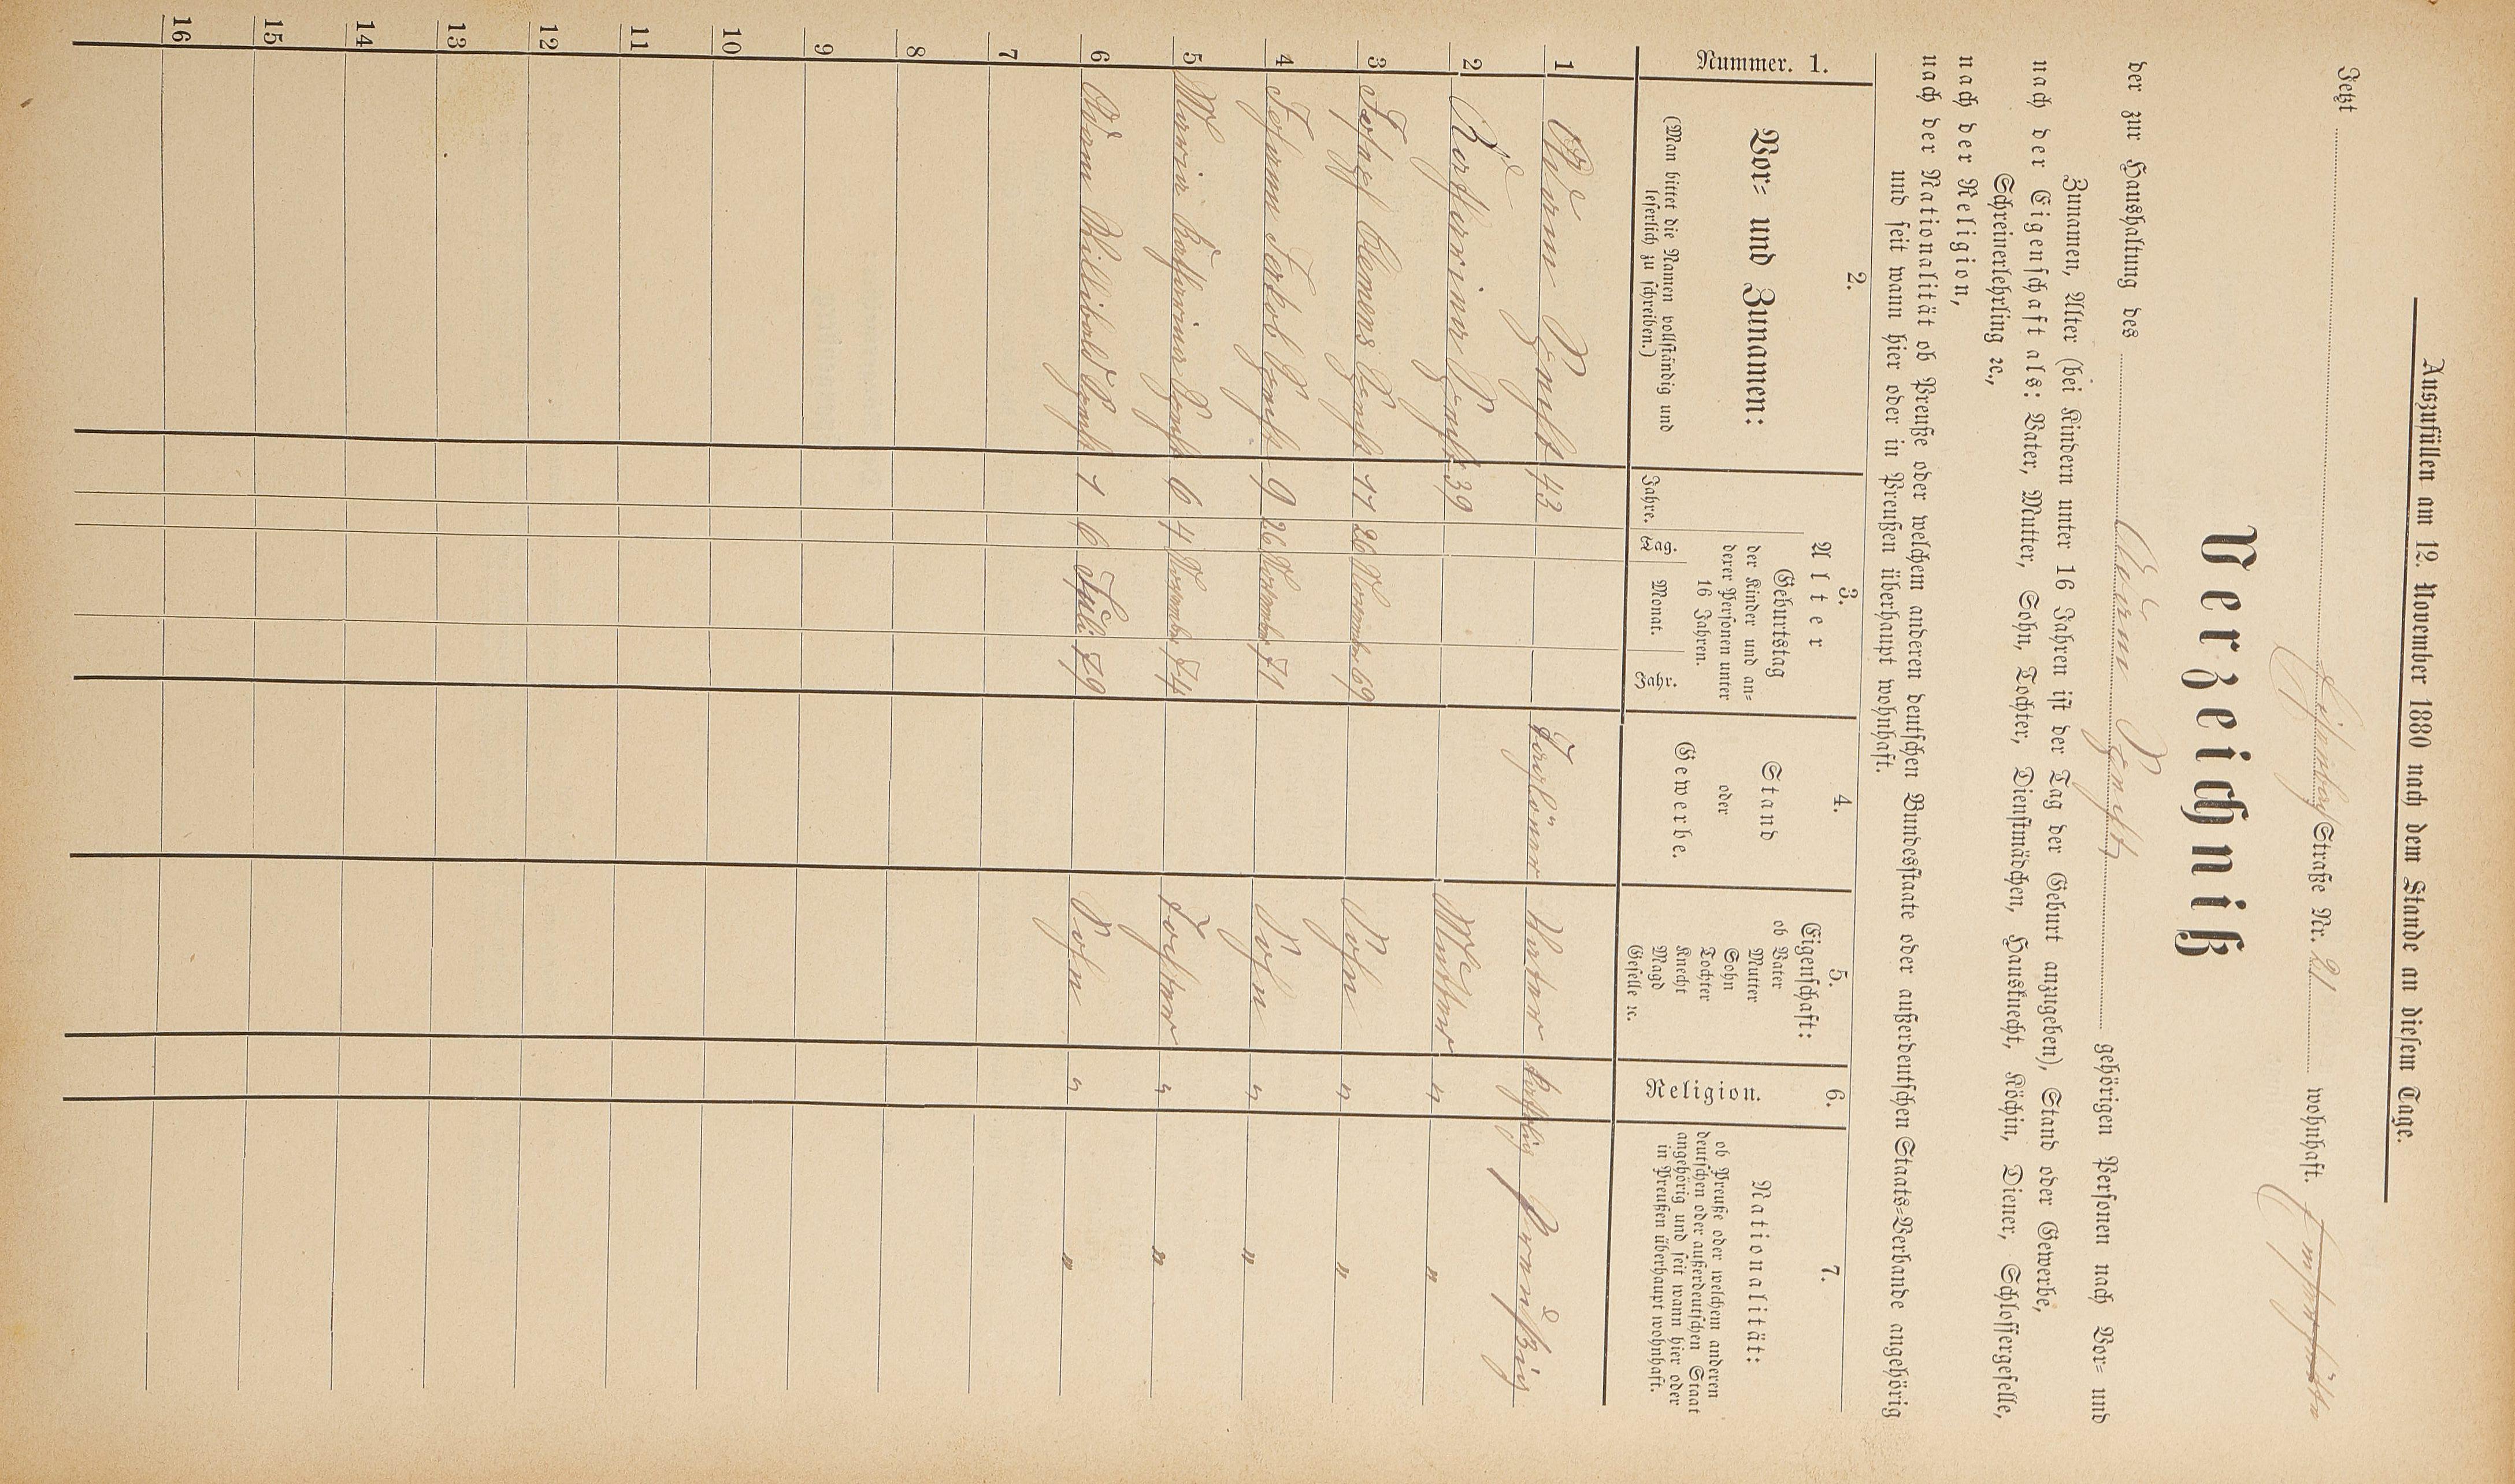 Auszufüllen am 12. November 1880 nach dem Stande an diesem Tage.
Jetzt Straße Nr. 21 wohnhaft.
Verzeichniß
der zur Haushaltung des Adam Senft gehörigen Personen nach Vor= und
Zunamen, Alter (bei Kindern unter 16 Jahren ist der Tag der Geburt anzugeben), Stand oder Gewerbe,
nach der Eigenschaft als: Vater, Mutter, Sohn, Tochter, Dienstmädchen, Hausknecht, Köchin, Diener, Schlossergeselle,
Schreinerlehrling ꝛc.,
nach der Religion,
nach der Nationalität ob Preuße oder welchem anderen deutschen Bundesstaate oder außerdeutschen Staats=Verbande angehörig
und seit wann hier oder in Preußen überhaupt wohnhaft.
Nummer. 1.
2.
Vor= und Zunamen:
(Man bittet die Namen vollständig und
leserlich zu schreiben.)
3.
Alter
Geburtstag
der Kinder und an=
derer Personen unter
16 Jahren.
Jahre. Tag. Monat. Jahr.
4.
Stand
oder
Gewerbe.
5.
Eigenschaft:
ob Vater
Mutter
Sohn
Tochter
Knecht
Magd
Geselle ꝛc.
6.
Religion.
7.
Nationalität:
ob Preuße oder welchem anderen
deutschen oder außerdeutschen Staat
angehörig und seit wann hier oder
in Preußen überhaupt wohnhaft.
1 Adam Senft 43 Taglöner Vater Katholig Preußig
2 Katharina Senft 39 Mutter " "
3 Josepf Clemens Senft 11 26 November 69 Sohn " "
4 Johann Jakob Senft 9 26 November 71 Sohn " "
5 Maria Katharina Senft 6 4 November 74 Tochter " "
6 Adam Willibald Senft 1 6 Juli 79 Sohn " "
7
8
9
10
11
12
13
14
15
16